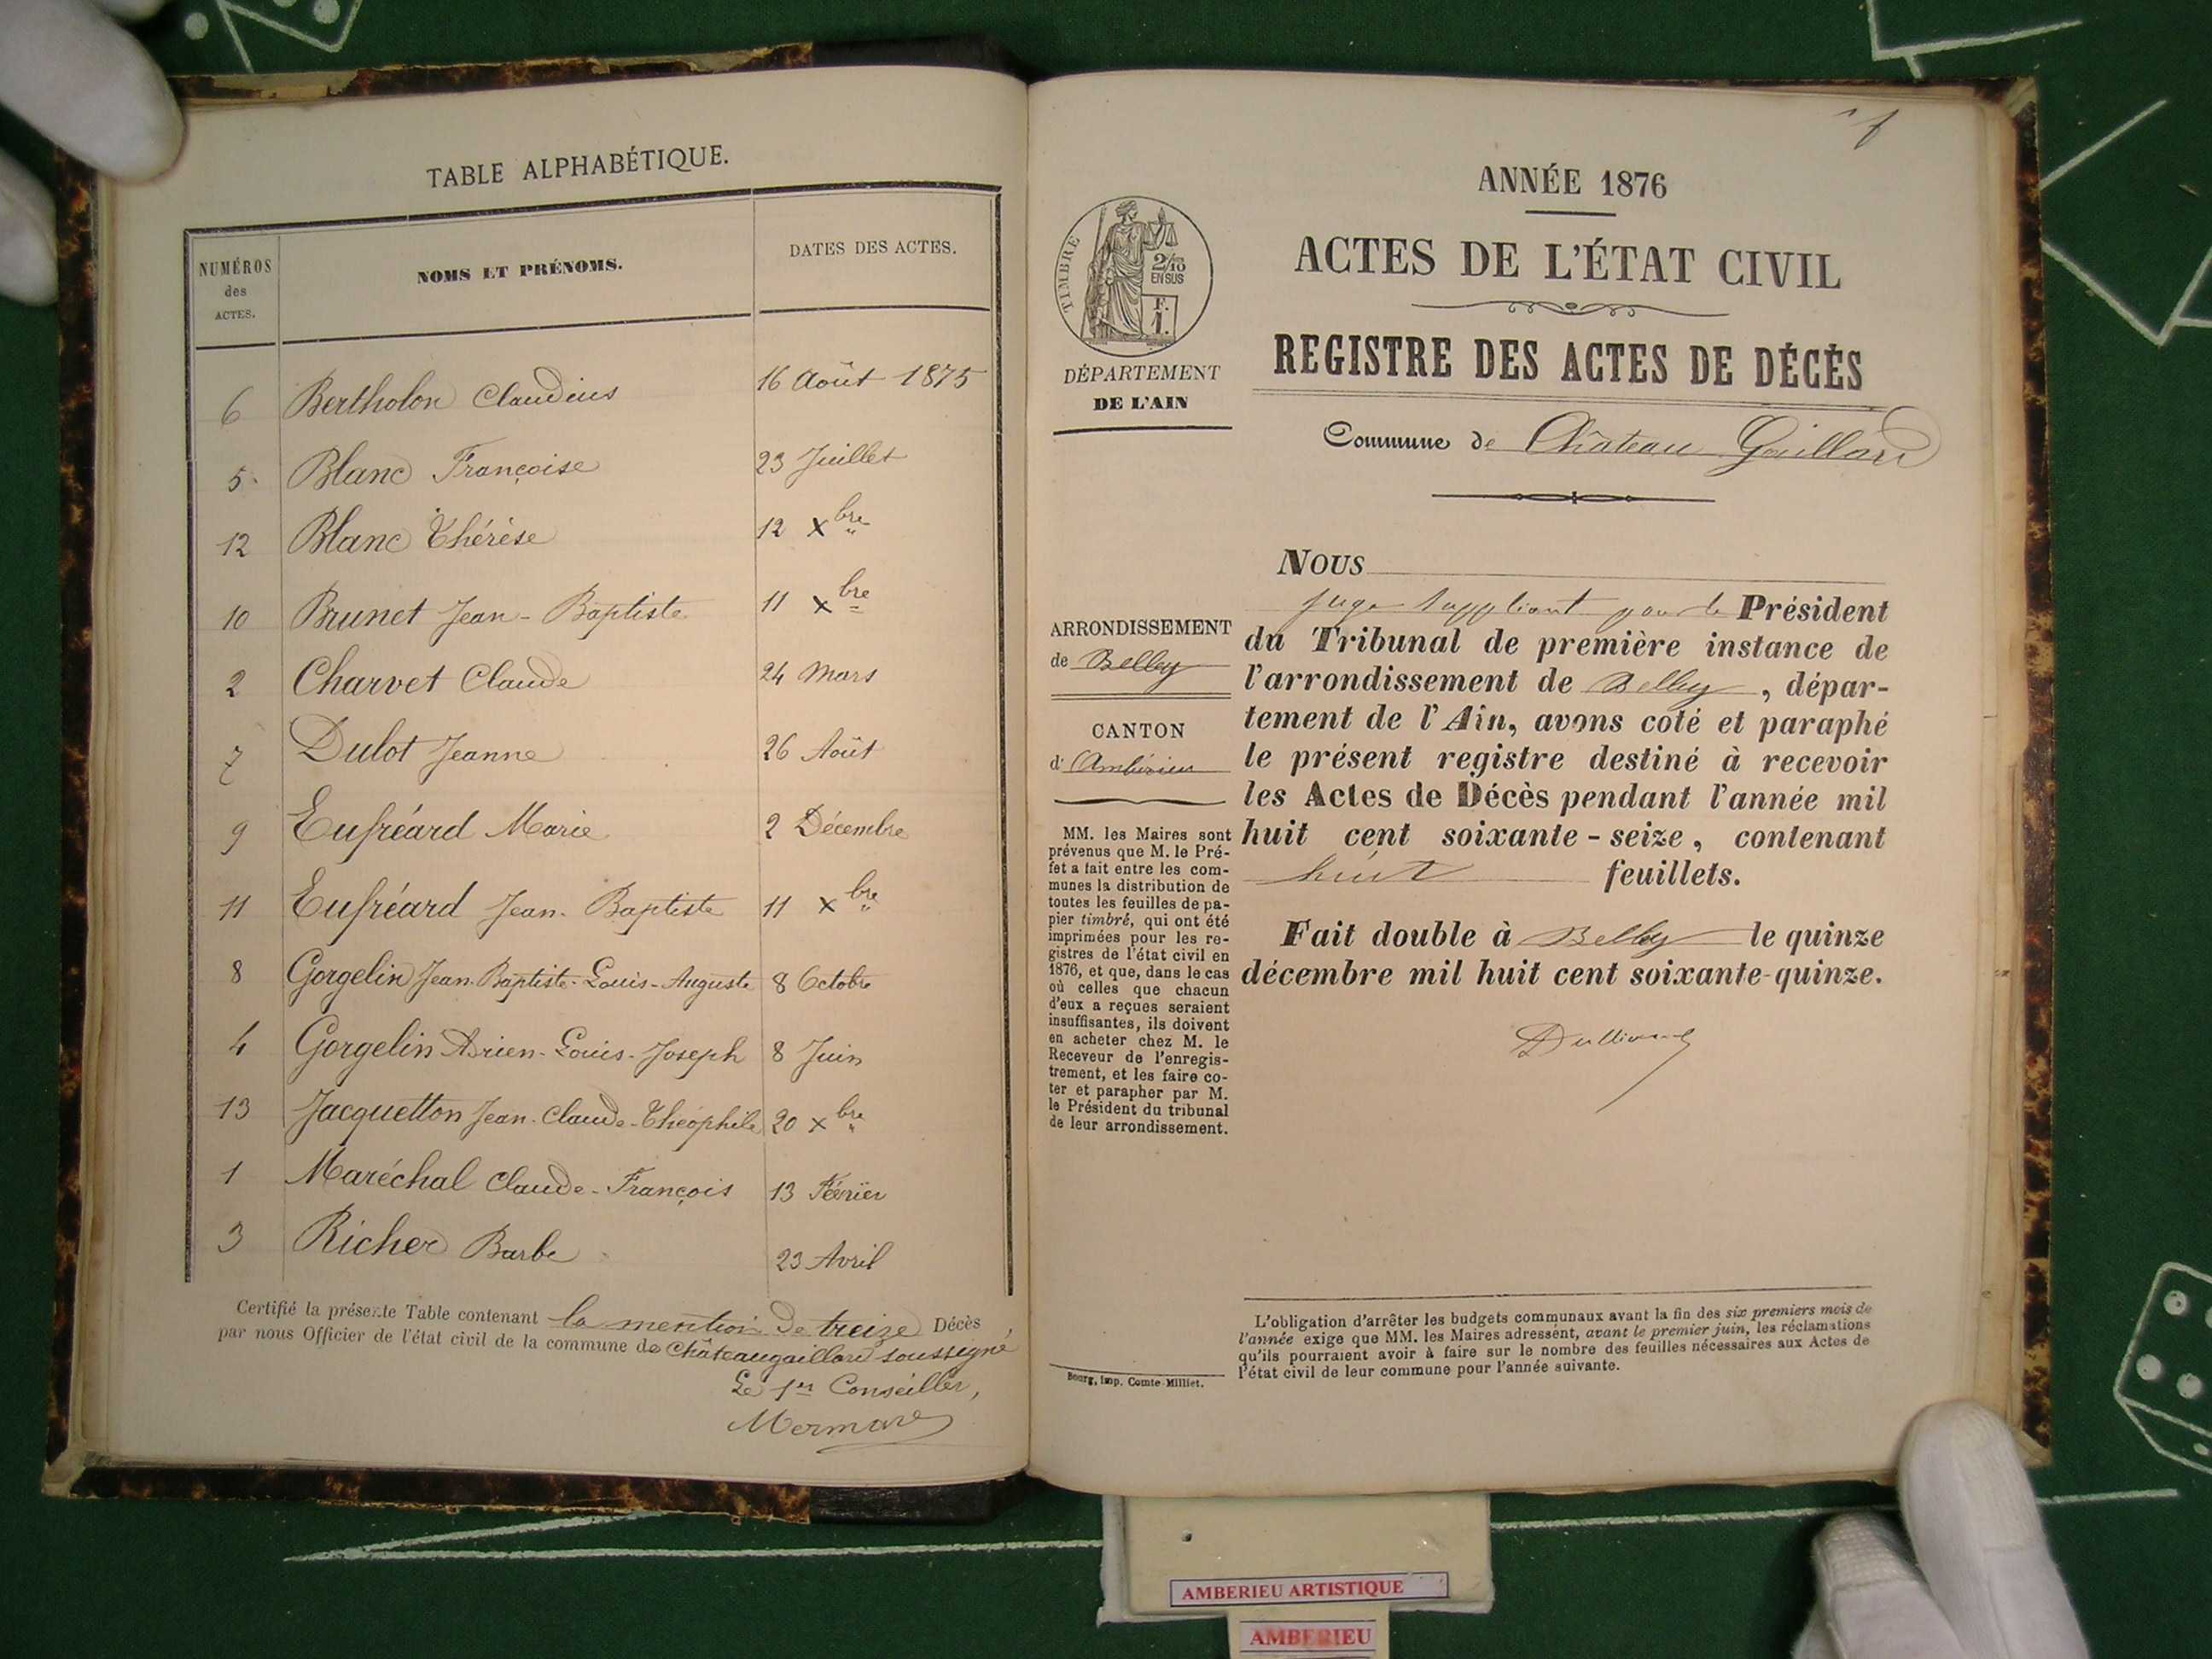 TABLE ALPHABÉTIQUE.
NUMÉROS
des
ACTES.
NOMS ET PRÉNOMS.
DATES DES ACTES.
6 Bertholon Claudius 16 Août 1875
5 Blanc Françoise 23 Juillet
12 Blanc Thérèse 12 Xbre
10 Brunet Jean-Baptiste 11 Xbre
2 Charvet Claude 24 Mars
7 Dulot Jeanne 26 Août
9 Eufréard Marie 2 Décembre
11 Eufréard Jean-Baptiste 11 Xbre
8 Gorgelin Jean-Baptiste-Louis-Auguste 8 Octobre
4 Gorgelin Adrien-Louis-Joseph 8 Juin
13 Jacquetton Jean-Claude-Théophile 20 Xbre
1 Maréchal Claude-François 13 Février
3 Richer Barbe 23 Avril
Certifié la présente Table contenant la mention de treize Décès,
par nous Officier de l'état civil de la commune de Châteaugaillard soussigné
Le 1er Conseiller,
ANNÉE 1876
ACTES DE L'ÉTAT CIVIL
REGISTRE DES ACTES DE DÉCÈS
Commune de Château Gaillard
TIMBRE
2/10
EN SUS
F.
1.
DÉPARTEMENT
DE L'AIN
ARRONDISSEMENT
de Belley
CANTON
d' Ambérieu
MM. les Maires sont
prévenus que M. le Pré-
fet a fait entre les com-
munes la distribution de
toutes les feuilles de pa-
pier timbré, qui ont été
imprimées pour les re-
gistres de l'état civil en
1876, et que, dans le cas
où celles que chacun
d'eux a reçues seraient
insuffisantes, ils doivent
en acheter chez M. le
Receveur de l'enregis-
trement, et les faire co-
ter et parapher par M.
le Président du tribunal
de leur arrondissement.
Bourg, imp. Comte-Milliet.
NOUS
juge suppléant pour le Président
du Tribunal de première instance de
l'arrondissement de Belley, dépar-
tement de l'Ain, avons coté et paraphé
le présent registre destiné à recevoir
les Actes de Décès pendant l'année mil
huit cent soixante-seize, contenant
huit feuillets.
Fait double à Belley le quinze
décembre mil huit cent soixante-quinze.
L'obligation d'arrêter les budgets communaux avant la fin des six premiers mois de
l'année exige que MM. les Maires adressent, avant le premier juin, les réclamations
qu'ils pourraient avoir à faire sur le nombre des feuilles nécessaires aux Actes de
l'état civil de leur commune pour l'année suivante.
AMBERIEU ARTISTIQUE
AMBERIEU